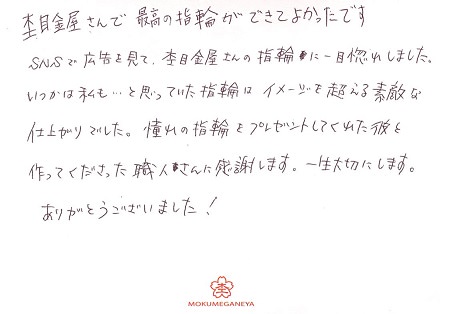 杢目金屋さんで最高の指輪ができてよかったです
SNSで広告を見て、杢目金屋さんの指輪に一目惚れしました。
いつかは私も…と思っていた指輪はイメージを超える素敵な
仕上がりでした。憧れの指輪をプレゼントしてくれた彼と
作ってくださった職人さんに感謝します。一生大切にします。
ありがとうございました!
杢
MOKUMEGANEYA